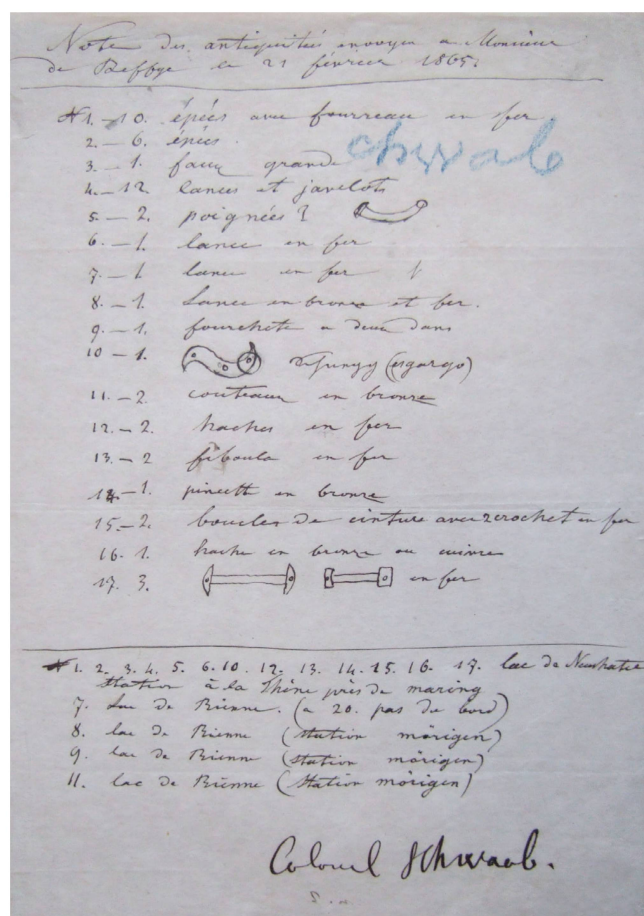 Note des antiquités envoyées a Monsieur
de Reffye le 21 février 1865.
1. – 10. épées avec fourreau en fer.
2. – 6. épées.
3. – 1. faux grande
chwab
4. – 12. lances et javelots
5. – 2. poignées ?
6. – 1. lance en fer
7. – 1 lance en fer
8. – 1. Lance en bronze et fer.
9. – 1. fourchete a deux dans
10 – 1. (esgargo)
11. – 2. couteaux en bronze
12. – 2. haches en fer
13. – 2 fiboula en fer
14. – 1. pincett en bronze
15. – 2. boucles de cinture avec crochet en fer
16. 1. hache en bronze ou cuivre
17. 3. en fer
1. 2. 3. 4. 5. 6. 10. 12. 13. 14. 15. 16. 17. lac de
Station à la Thène près de maring
7. Lac de Bienne. (a 20. pas du bord)
8. lac de Bienne (station mörigen)
9. lac de Bienne (station mörigen)
11. lac de Bienne (station mörigen)
Colonel Schwaab.